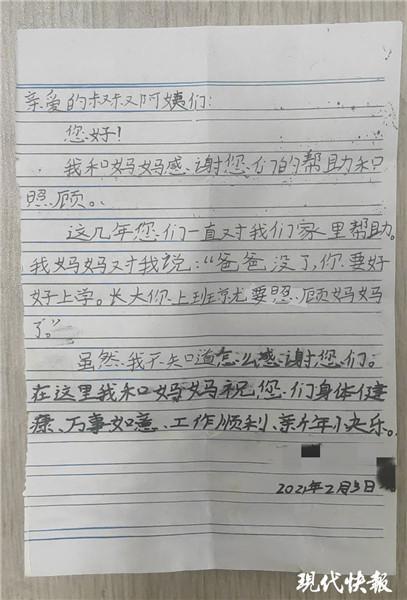 亲爱的叔叔阿姨们:
您好!
我和妈妈感谢您们的帮助和
照顾。
这几年您们一直对我们家里帮助。
我妈妈对我说:“爸爸没了,你要好
好上学。长大你上班就要照顾妈妈
了。”
虽然我不知道怎么感谢您们。
在这里我和妈妈祝您们身体健
康、万事如意、工作顺利、新年快乐。
2021年2月3日
现代快报